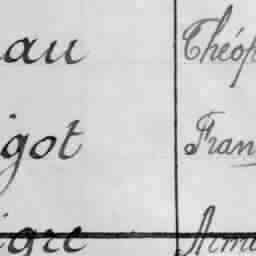 au Théop
got Fran
igre Arma